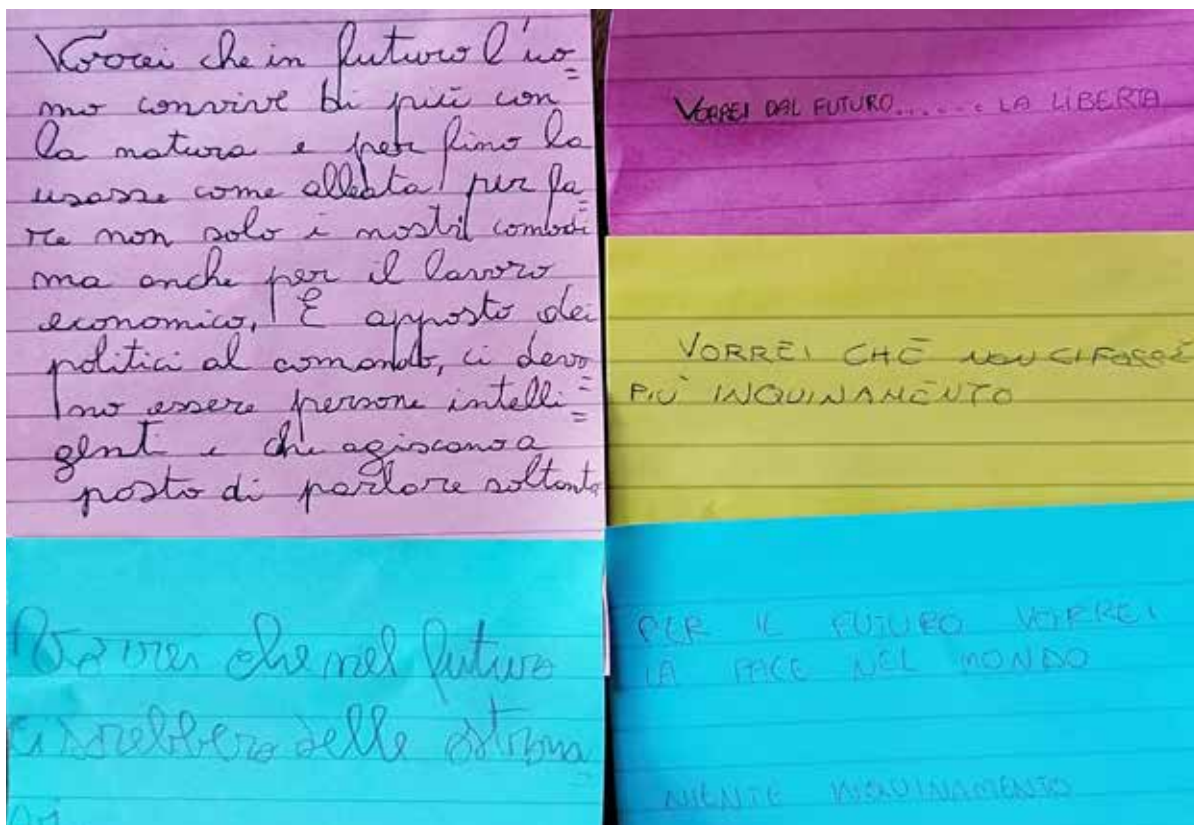 Vorrei che in futuro l'uo=
mo convive di più con
la natura e per fino la
usasse come alleata per fa=
re non solo i nostri comodi
ma anche per il lavoro
economico. E apposto dei
politici al comando, ci devo=
no essere persone intelli=
genti e che agiscano a
posto di parlare soltanto
VORREI DAL FUTURO...... LA LIBERTA
VORREI CHE NON CI FOSSE
PIÙ INQUINAMENTO
Vorrei che nel futuro
ci sarebbero delle
PER IL FUTURO VORREI
LA PACE NEL MONDO
NIENTE INQUINAMENTO